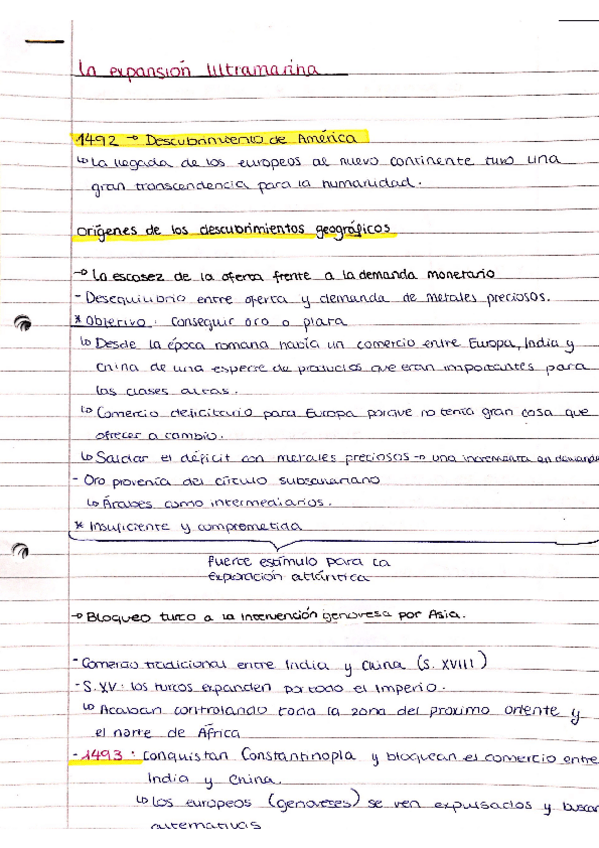 La expansión Ultramarina
1492 → Descubrimiento de América
↳ La llegada de los europeos al nuevo continente tuvo una
gran transcendencia para la humanidad.
Orígenes de los descubrimientos geográficos
→ La escasez de la oferta frente a la demanda monetario
- Desequilibrio entre oferta y demanda de metales preciosos.
* Objetivo: conseguir oro o plata
↳ Desde la época romana había un comercio entre Europa, India y
China de una esperre de productos que eran importantes para
las clases altas.
↳ Comercio deficitario para Europa porque no tenía gran cosa que
ofrecer a cambio.
↳ Saldar el déficit con metales preciosos → una incrementa en demanda
- Oro provenía del círculo subsahariano
↳ Árabes como intermediarios.
* Insuficiente y comprometida
fuerte estímulo para la
exporación atlántica
→ Bloqueo turco a la intervención genovesa por Asia.
- Comercio tradicional entre India y China (S. XVIII)
- S. XV: los turcos expanden por todo el Imperio.
↳ Acaban controlando toda la zona del proximo oriente y
el norte de África
- 1493: conquistan Constantinopla y bloquean el comercio entre
India y China.
↳ Los europeos (genoveses) se ven expulsados y buscar
alternativas